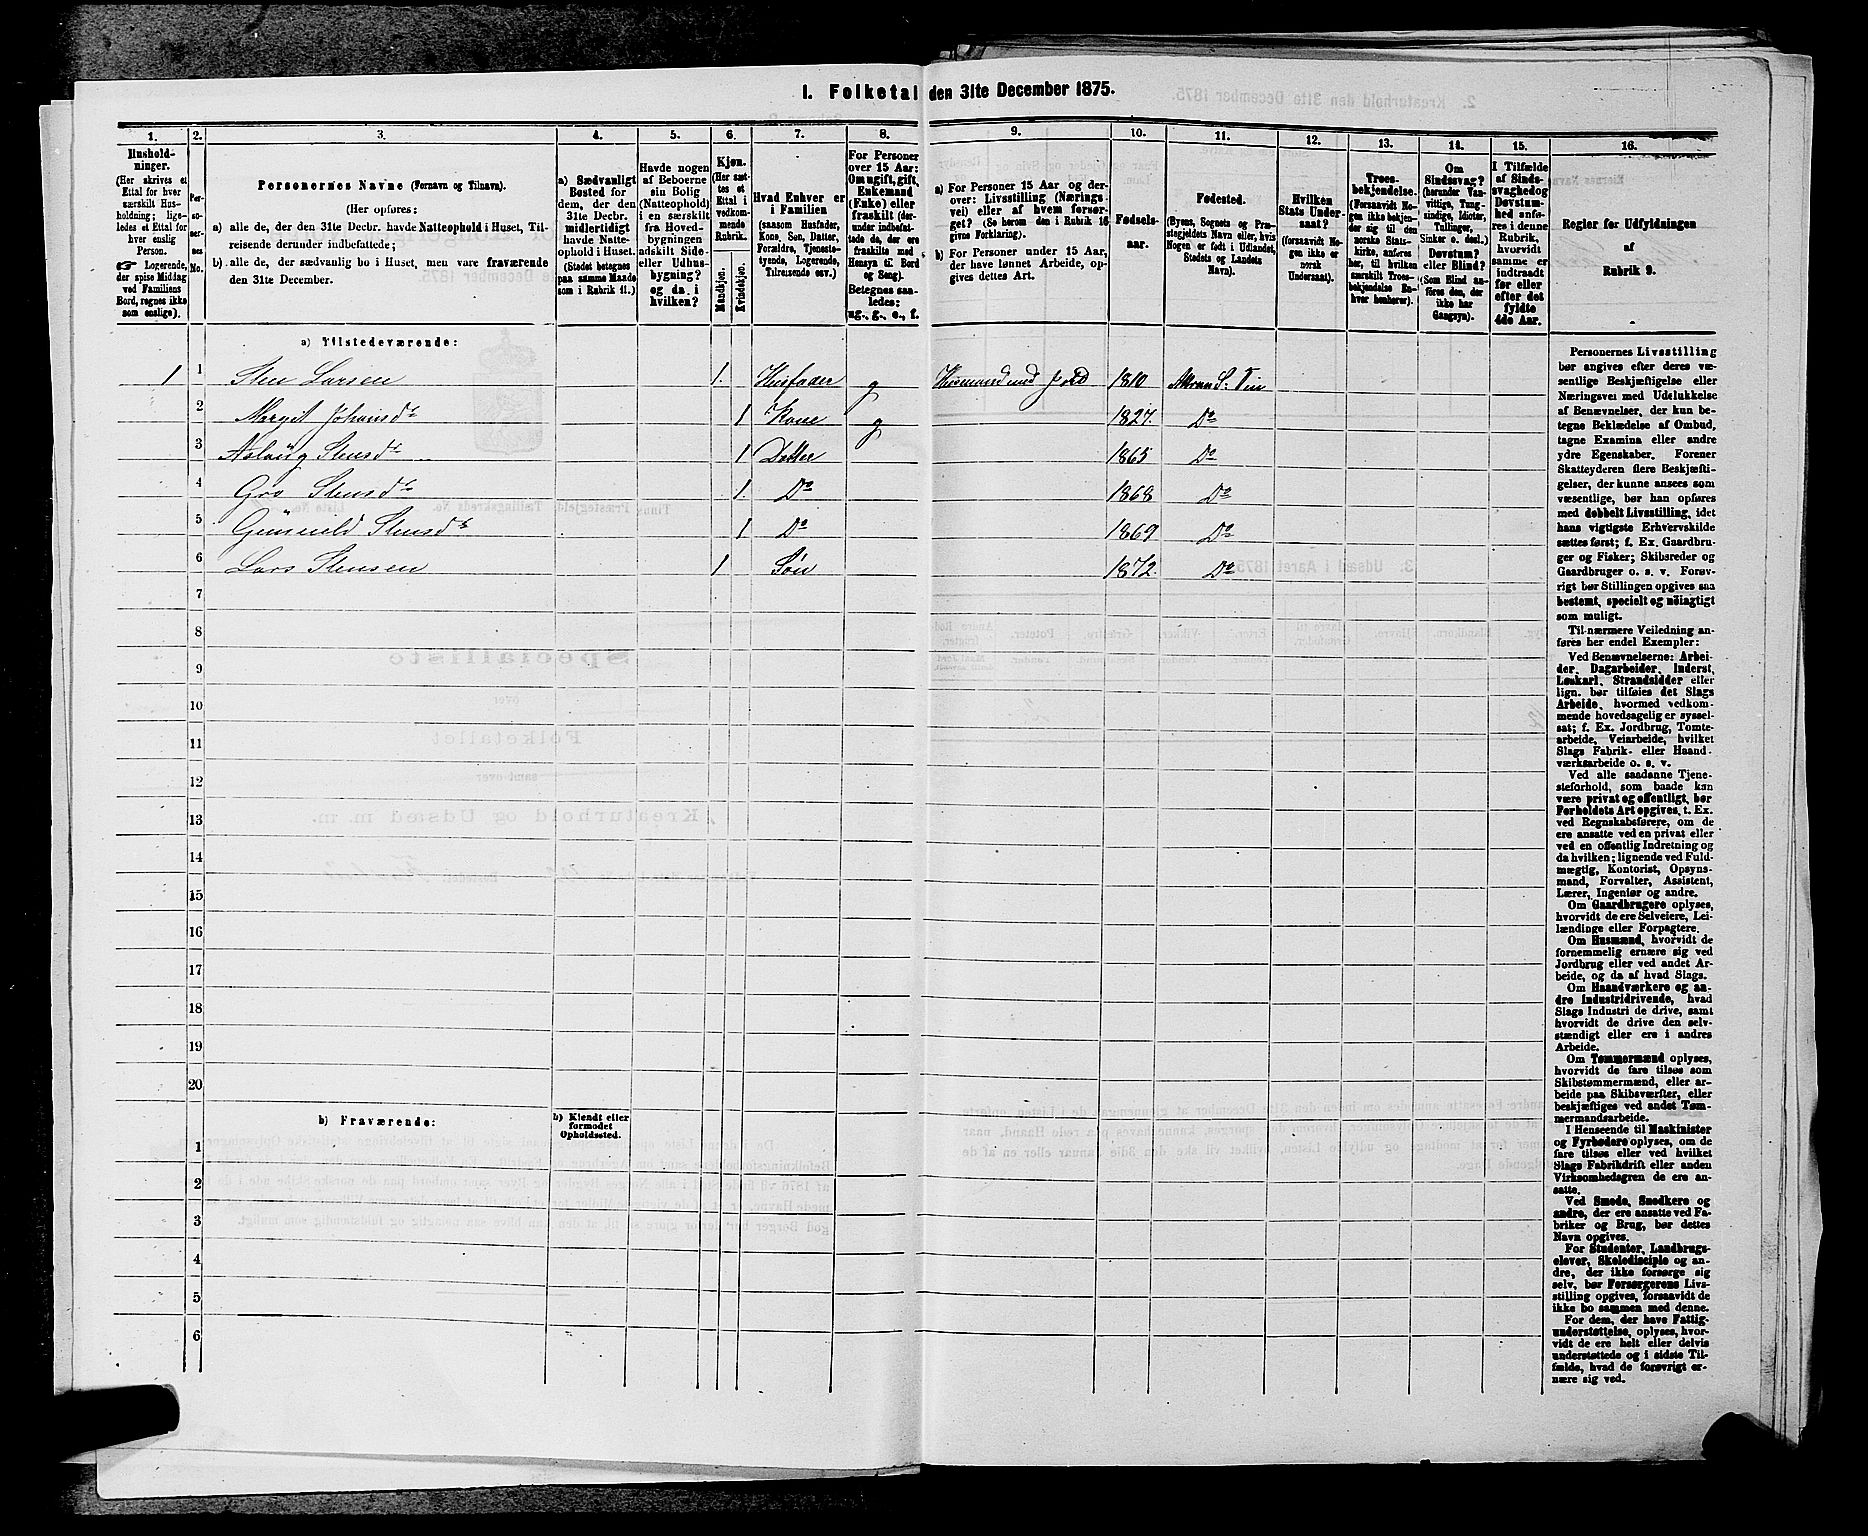 I. Folketal den 31te December 1875.
1. 2. 3. 4. 5. 6. 7. 8. 9. 10. 11. 12. 13. 14. 15. 16.
Husholdninger.
(Her skrives et
Ettal for hver
særskilt Husholdning;
ligeledes et Ettal for
hver enslig
Person.
☞ Logerende,
der spise Middag
ved Familiens
Bord, regnes ikke
som enslige).
Personernes No.
Personernes Navne (Fornavn og Tilnavn).
(Her opføres:
a) alle de, der den 31te Decbr. havde Natteophold i Huset, Tilreisende
derunder indbefattede;
b) alle de, der sædvanlig bo i Huset, men vare fraværende
den 31te December.
a) Sædvanligt
Bosted for
dem, der den
31te Decbr.
midlertidigt
havde Natteophold
i Huset.
(Stedet betegnes
paa samme Maade
som i Rubrik 11.)
Havde nogen
af Beboerne
sin Bolig
(Natteophold)
i en særskilt
fra Hovedbygningen
adskilt Side-
eller Udhusbygning?
og da i
hvilken?
Kjøn.
(Her sættes et
Ettal i
vedkommende
Rubrik.
Mandkjøn.
Kvindekjøn.
Hvad Enhver er
i Familien
(saasom Husfader,
Kone, Søn, Datter,
Forældre, Tjenestetyende,
Logerende,
Tilreisende osv.)
For Personer
over 15 Aar:
Om ugift, gift,
Enkemand
(Enke) eller
fraskilt (derunder
indbefattede
de, der ere
fraskilte med
Hensyn til Bord
og Seng).
Betegnes saaledes:
ug., g., e., f.
a) For Personer 15 Aar og derover:
Livsstilling (Næringsvei)
eller af hvem forsørget?
(Se herom den i Rubrik 16
gives Forklaring).
b) For Personer under 15 Aar,
der have lønnet Arbeide, opgives
dettes Art.
Fødselsaar.
Fødested.
(Byens, Sognets og Præstegjeldets
Navn eller, hvis
Nogen er født i Udlandet,
Stedets og Landets
Navn).
Hvilken
Stats Undersaat?
(forsaavidt Nogen
ikke er
norsk
Undersaat).
Troesbekjendelse.
(Forsaavidt Nogen
ikke bekjender
sig til den
norske Statskirke,
anføres
her, til hvilken
særskilt Troesbekjendelse
Enhver
henhører).
Om
Sindssvag?
(herunder Vanvittige,
Tungsindige,
Idioter,
Tullinger,
Sinker o. desl.)
Døvstum?
eller Blind?
(Som Blind anføres
den, der
ikke har
Gangsyn).
I Tilfælde
af Sindssvaghed
og Døvstumhed
anføres
i denne
Rubrik,
hvorvidt
samme er
indtraadt
før eller
efter det
fyldte
4de Aar.
Regler for Udfyldningen
af
Rubrik 9.
a) Tilstedeværende:
1 1 Sten Larsen 1. Husfader g Husmand med Jord 1810 Atraa S. Tin
2 Margit Johansd. 1 Kone g 1827. Do
3 Aslaug Stensd. 1 Datter 1865 Do
4 Gro Stensd. 1. Do 1868 Do
5 Gunuild Stensd. 1 Do 1869 Do
6 Lars Stensen 1 Søn 1872. Do
7
8
9
10
11
12
13
14
15
16
17
18
19
20
b) Fraværende:
b) Kjendt eller
formodet
Opholdssted.
1
2
3
4
5
6
Personernes Livsstilling
bør angives efter deres væsentlige
Beskjæftigelse eller
Næringsvei med Udelukkelse
af Benævnelser, der kun betegne
Beklædelse af Ombud,
tagne Examina eller andre
ydre Egenskaber. Forener
Skatteyderen flere Beskjæftigelser,
der kunne ansees som
væsentlige, bør han opføres
med dobbelt Livsstilling, idet
hans vigtigste Erhvervskilde
sættes først; f. Ex. Gaardbruger
og Fisker; Skibsreder og
Gaardbruger o. s. v. Forøvrigt
bør Stillingen opgives saa
bestemt, specielt og nøiagtigt
som muligt.
Til nærmere Veiledning anføres
her endel Exempler:
Ved Benævnelserne: Arbeider,
Dagarbeider, Inderst,
Løskarl, Strandsidder eller
lign. bør tilføies det Slags
Arbeide, hvormed vedkommende
hovedsagelig er sysselsat;
f. Ex. Jordbrug, Tomtearbeide,
Veiarbeide, hvilket
Slags Fabrik- eller Haandværksarbeide
o. s. v.
Ved alle saadanne Tjenesteforhold,
som baade kan
være privat og offentligt, bør
Forholdets Art opgives, t. Ex.
ved Regnskabsførere, om de
ere ansatte ved en privat eller
ved en offentlig Indretning og
da hvilken; lignende ved Fuldmægtig,
Kontorist, Opsynsmand,
Forvalter, Assistent,
Lærer, Ingeniør og andre.
Om Gaardbrugere oplyses,
hvorvidt de ere Selveiere, Leilændinge
eller Forpagtere.
Om Husmænd, hvorvidt de
fornemmelig ernære sig ved
Jordbrug eller ved andet Arbeide,
og da af hvad Slags.
Om Haandværkere og andre
Industridrivende, hvad
Slags Industri de drive, samt
hvorvidt de drive den selvstændigt
eller ere i andres
Arbeide.
Om Tømmermænd oplyses,
hvorvidt de fare tilsøs som
Skibstømmermænd, eller arbeide
paa Skibsværfter, eller
beskjæftiges ved andet Tømmermandsarbeide.
I Henseende til Maskinister
og Fyrbødere oplyses, om de
fare tilsøs eller ved hvilket
Slags Fabrikdrift eller anden
Virksomhedsgren de ere ansatte.
Ved Smede, Snedkere og
andre, der ere ansatte ved Fabriker
og Brug, bør dettes
Navn opgives.
For Studenter, Landbrugselever,
Skoledisciple og andre,
der ikke forsørge sig
selv, bør Forsørgerens Livsstilling
opgives, forsaavidt de
ikke bo sammen med denne.
For dem, der have Fattigunderstøttelse,
oplyses, hvorvidt
de ere helt eller delvis
understøttede og i sidste Tilfælde,
hvad de forøvrigt ernære
sig ved.